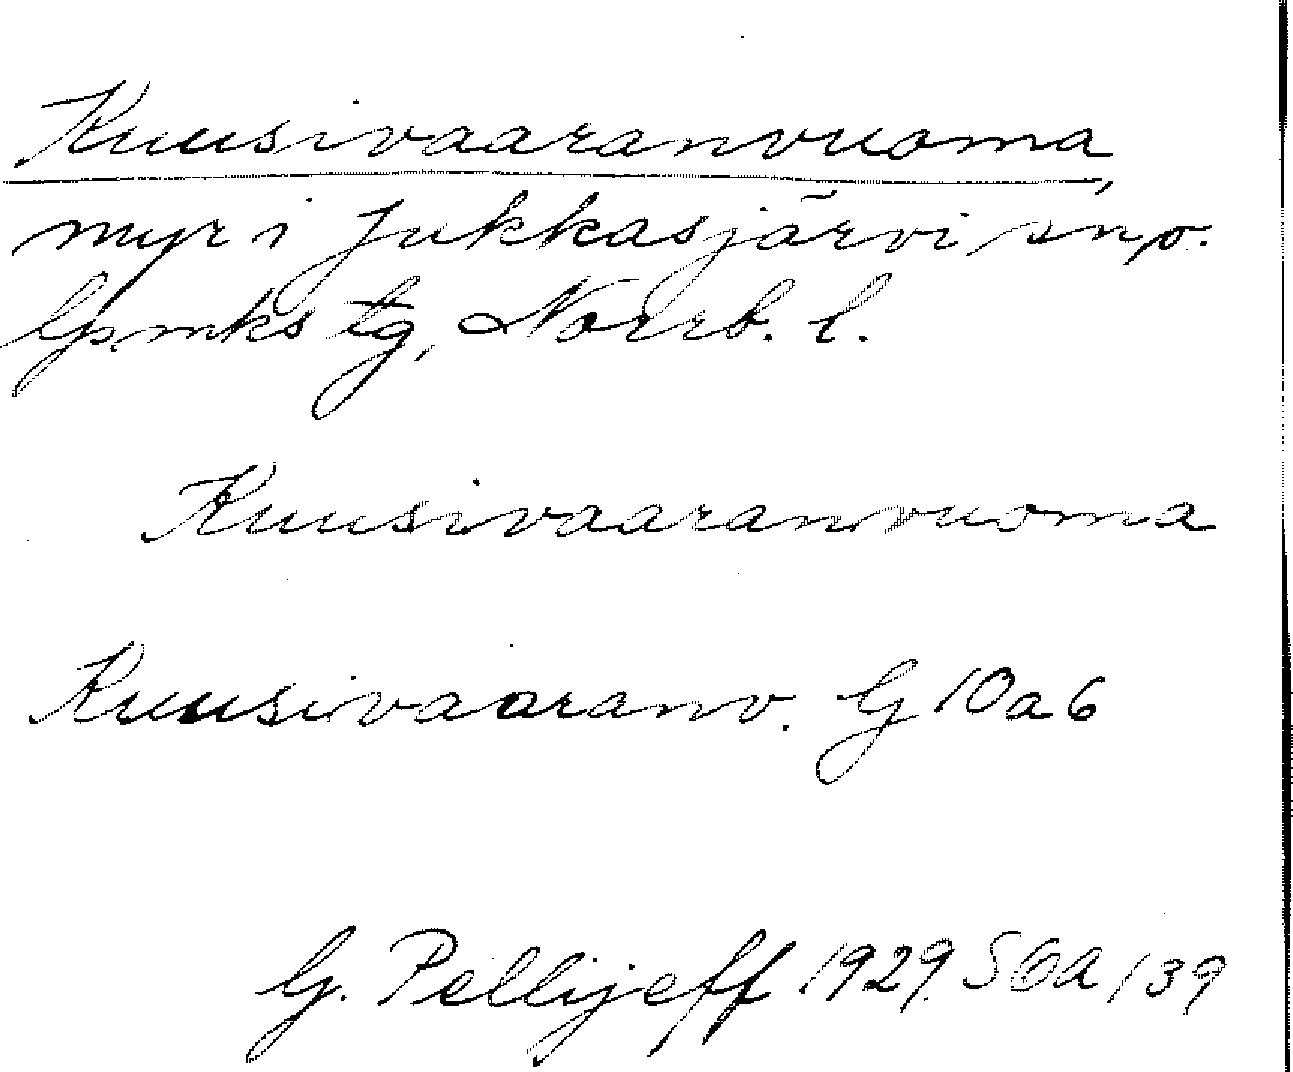 Kuusivaaranvuoma,
myr i Jukkasjärvi snp.
Lpmks tg, Norrb. l.
Kuusivaaranvuoma
Kuusivaaranv. G 10 a 6
G. Pellijeff 1929. SOA 139